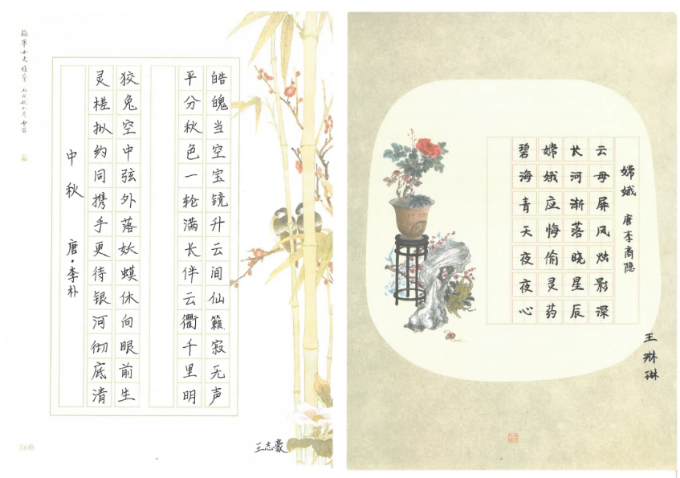 皓魄当空宝镜升云间仙籁寂无声
平分秋色一轮满长伴云衢千里明
狡兔空中弦外落妖蟆休向眼前生
灵槎拟约同携手更待银河彻底清
中秋 唐·李朴
王志豪
嫦娥 唐李商隐
云母屏风烛影深
长河渐落晓星辰
嫦娥应悔偷灵药
碧海青天夜夜心
王琳琳